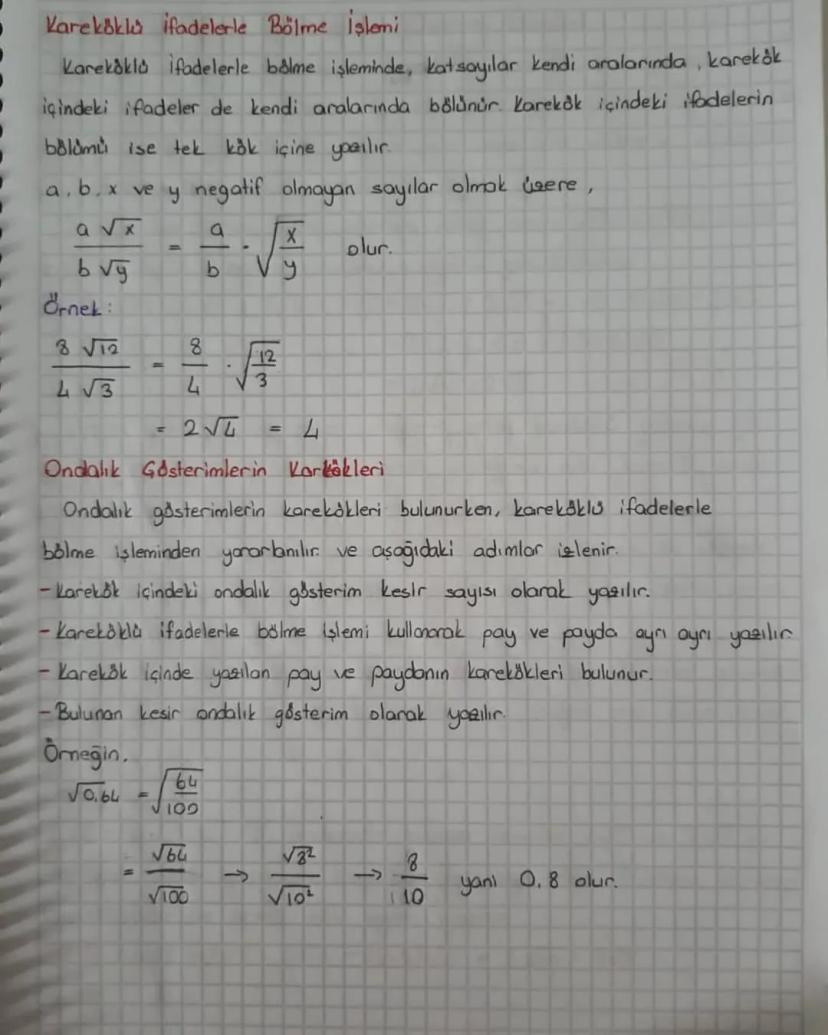 Kareköklü İfadelerle Bölme İşlemi
Kareköklü ifadelerle bölme işleminde, katsayılar kendi aralarında, karekök
içindeki ifadeler de kendi aralarında bölünür. Karekök içindeki ifadelerin
bölümü ise tek kök içine yazılır.
a, b, x ve y negatif olmayan sayılar olmak üzere,
a√x / b√y = a/b · √(x/y) olur.
Örnek:
8√12 / 4√3 = 8/4 · √(12/3)
= 2√4 = 4
Ondalık Gösterimlerin Karkökleri
Ondalık gösterimlerin karekökleri bulunurken, kareköklü ifadelerle
bölme işleminden yararlanılır ve aşağıdaki adımlar izlenir.
- Karekök içindeki ondalık gösterim kesir sayısı olarak yazılır.
- Kareköklü ifadelerle bölme işlemi kullanarak pay ve payda ayrı ayrı yazılır
- Karekök içinde yazılan pay ve paydanın karekökleri bulunur.
- Bulunan kesir ondalık gösterim olarak yazılır.
Örneğin,
√0,64 = √(64/100)
= √64/√100 → √8²/√10² → 8/10 yani 0,8 olur.